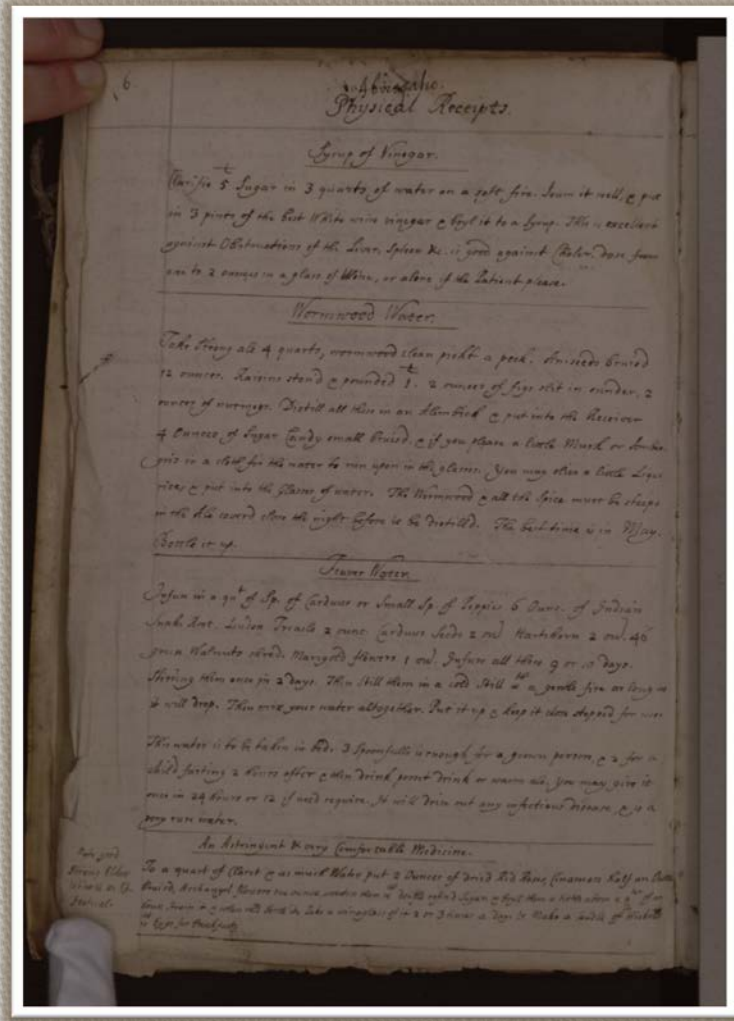 6
Physical Receipts.
Syrup of Vinegar.
Clarifie 5 Sugar in 3 quarts of water on a soft fire. Scum it well, & put
in 3 pints of the best White wine vinegar & boyl it to a Syrup. This is excellent
against Obstructions of the Liver, Spleen &c. is good against Choler. dose from
one to 2 ounces in a glass of Wine, or alone if the Patient please.
Wormwood Water.
Take strong ale 4 quarts, wormwood clean pickt a peck. Aniseeds bruised
12 ounces. Raisins stond & pounded 1. 2 ounces of figs slit in sunder, 2
ounces of nutmegs. Distill all these in an Alembick & put into the Receiver
4 Ounces of Sugar Candy small bruised, & if you please a little Musk or Amber
gris in a cloth for the water to run upon in the glasses. You may slice a little Liquo
rice, & put into the Glasses of water. The Wormwood & all the Spice must be steept
in the Ale coverd close the night before it be distilled. The best time is in May.
Bottle it up.
Feaver Water.
Infuse in a qut of Sp. of Carduus or Small Sp. of Poppies 6 Ounc. of Indian
Snake Root. London Treacle 2 ounc. Carduus Seeds 2 oun. Hartshorn 2 oun. 40
green Walnuts shred. Marigold flowers 1 oun. Infuse all these 9 or 10 days.
Stirring them once in 2 days. Then still them in a cold Still wth a gentle fire as long as
it will drop. Then mix your water altogether. Put it up & keep it close stopped for use.
This water is to be taken in bed. 3 Spoonfulls is enough for a grown person, & 2 for a
child fasting 2 hours after & then drink posset drink or warm ale, you may give it
once in 24 hours or 12 if need require. It will drive out any infectious disease, & is a
very rare water.
An Astringent & very Comfortable Medicine.
To a quart of Claret & as much Water put 2 Ounces of dried Red Rose, Cinamon half an Ounce
Bruised, Archangel flowers one ounce, sweeten them wth double refined Sugar, & boyl them